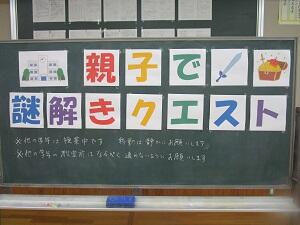 親子で
謎解きクエスト
※他の学年は授業中です 移動は静かにお願いします。
※他の学年の教室前はなるべく通らないようにお願いします